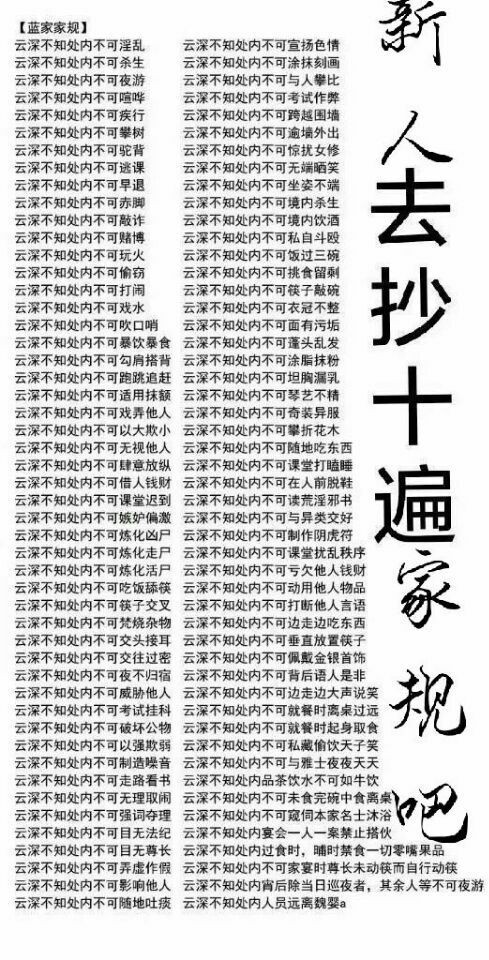 【蓝家家规】
云深不知处内不可淫乱
云深不知处内不可杀生
云深不知处内不可夜游
云深不知处内不可喧哗
云深不知处内不可疾行
云深不知处内不可攀树
云深不知处内不可驼背
云深不知处内不可逃课
云深不知处内不可早退
云深不知处内不可赤脚
云深不知处内不可敲诈
云深不知处内不可赌博
云深不知处内不可玩火
云深不知处内不可偷窃
云深不知处内不可打闹
云深不知处内不可戏水
云深不知处内不可吹口哨
云深不知处内不可暴饮暴食
云深不知处内不可勾肩搭背
云深不知处内不可跑跳追赶
云深不知处内不可适用抹额
云深不知处内不可戏弄他人
云深不知处内不可以大欺小
云深不知处内不可无视他人
云深不知处内不可肆意放纵
云深不知处内不可借人钱财
云深不知处内不可课堂迟到
云深不知处内不可嫉妒偏激
云深不知处内不可炼化凶尸
云深不知处内不可炼化走尸
云深不知处内不可炼化活尸
云深不知处内不可吃饭舔筷
云深不知处内不可筷子交叉
云深不知处内不可焚烧杂物
云深不知处内不可交头接耳
云深不知处内不可交往过密
云深不知处内不可夜不归宿
云深不知处内不可威胁他人
云深不知处内不可考试挂科
云深不知处内不可破坏公物
云深不知处内不可以强欺弱
云深不知处内不可制造噪音
云深不知处内不可走路看书
云深不知处内不可无理取闹
云深不知处内不可强词夺理
云深不知处内不可目无法纪
云深不知处内不可目无尊长
云深不知处内不可弄虚作假
云深不知处内不可影响他人
云深不知处内不可随地吐痰
云深不知处内不可宣扬色情
云深不知处内不可涂抹刻画
云深不知处内不可与人攀比
云深不知处内不可考试作弊
云深不知处内不可跨越围墙
云深不知处内不可逾墙外出
云深不知处内不可惊扰女修
云深不知处内不可无端晒笑
云深不知处内不可坐姿不端
云深不知处内不可境内杀生
云深不知处内不可境内饮酒
云深不知处内不可私自斗殴
云深不知处内不可饭过三碗
云深不知处内不可挑食留剩
云深不知处内不可筷子敲碗
云深不知处内不可衣冠不整
云深不知处内不可面有污垢
云深不知处内不可蓬头乱发
云深不知处内不可涂脂抹粉
云深不知处内不可坦胸漏乳
云深不知处内不可琴艺不精
云深不知处内不可奇装异服
云深不知处内不可攀折花木
云深不知处内不可随地吃东西
云深不知处内不可课堂打瞌睡
云深不知处内不可在人前脱鞋
云深不知处内不可读荒淫邪书
云深不知处内不可与异类交好
云深不知处内不可制作阴虎符
云深不知处内不可课堂扰乱秩序
云深不知处内不可亏欠他人钱财
云深不知处内不可动用他人物品
云深不知处内不可打断他人言语
云深不知处内不可边走边吃东西
云深不知处内不可垂直放置筷子
云深不知处内不可佩戴金银首饰
云深不知处内不可背后语人是非
云深不知处内不可边走边大声说笑
云深不知处内不可就餐时离桌过远
云深不知处内不可就餐时起身取食
云深不知处内不可私藏偷饮天子笑
云深不知处内不可与雅士夜夜天天
云深不知处内品茶饮水不可如牛饮
云深不知处内不可未食完碗中食离桌
云深不知处内不可窥伺本家名士沐浴
云深不知处内宴会一人一案禁止搭伙
云深不知处内过食时，晡时禁食一切零嘴果品
云深不知处内不可家宴时尊长未动筷而自行动筷
云深不知处内宵后除当日巡夜者，其余人等不可夜游
云深不知处内人员远离魏婴a
新
人
去
抄
十
遍
家
规
吧